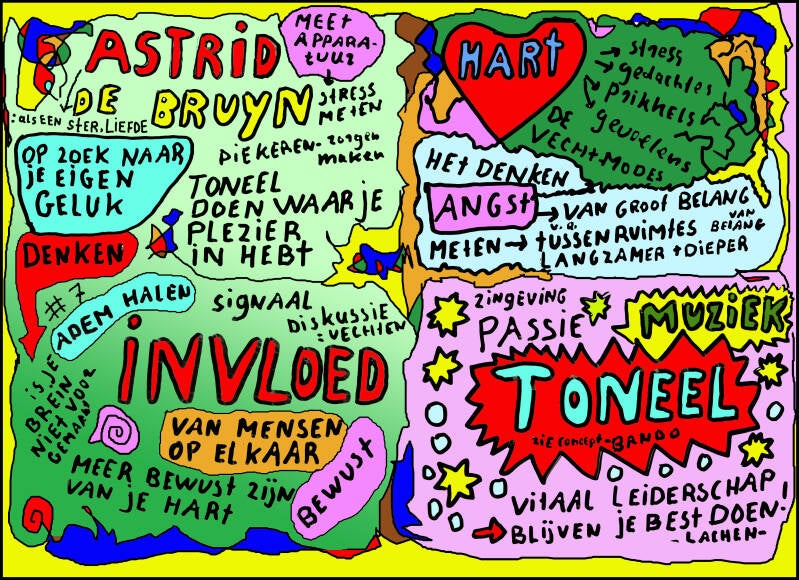 ASTRID
DE BRUYN
:ALS EEN STER. LIEFDE
MEET
APPARA-
tUUR
StRESS
METEN
PIEKEREN- zorgen
maken
OP ZOEK NAAR
jE EIGEN
GELUK
TONEEL
DOEN WAAR jE
PLEZIER
IN HEBt
DENKEN
#7
ADEM HALEN
SIGNAAL
DISKUSSIE
:VECHTEN
iNVLOED
is jE
BREIN
NiEt VOOR
GEMAAKt
VAN MENSEN
OP ELKAAR
BEWUST
MEER BEWUSt ZIJN
VAN jE HARt
HARt
stress
gedachtes
prikkels
gevoelens
DE
VECHtMODES
HEt DENKEN
ANGSt
VAN GROOt BELANG
METEN → tUSSEN RUIMTES
VAN
BELANG
LANGZAMER + DIEPER
ZINGEVING
PASSIE
MUZiEK
TONEEL
ZIE CONCEPT - BANDO
VITAAL LEIDERSCHAP!
BLIJVEN jE BEST DOEN!
- LACHEN -